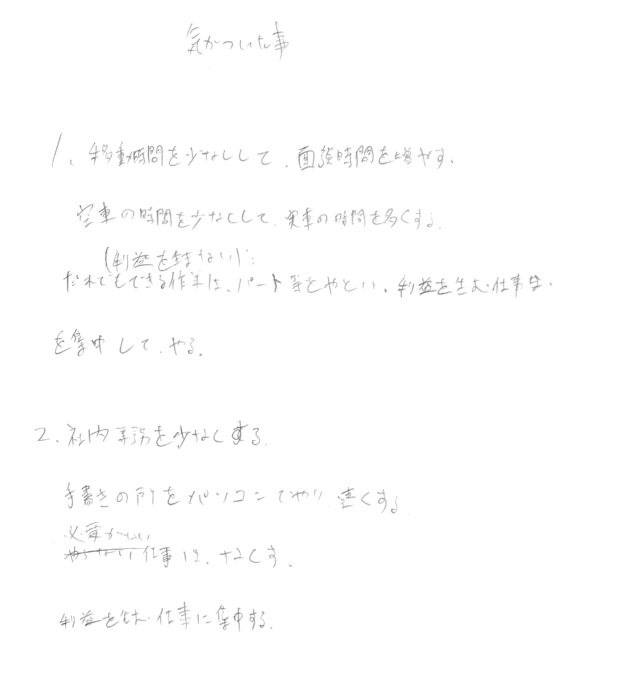 気がついた事
1、移動時間を少なくして、面談時間を増やす、
空車の時間を少なくして、実車の時間を多くする、
(利益を生まない)
だれでもできる作業は、パート等をやとい、利益を生む仕事
を集中して、やる、
2、社内事務を少なくする
手書きの所をパソコンでやり 速くする
必要がない
やらない仕事は、なくす、
利益を生む仕事に集中する、